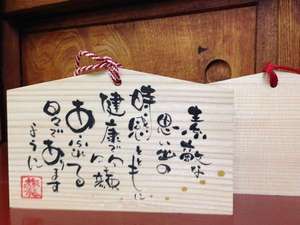 素敵な
思い出の
時・感とともに
健康で
笑顔
あふれてる
日々であります
ように